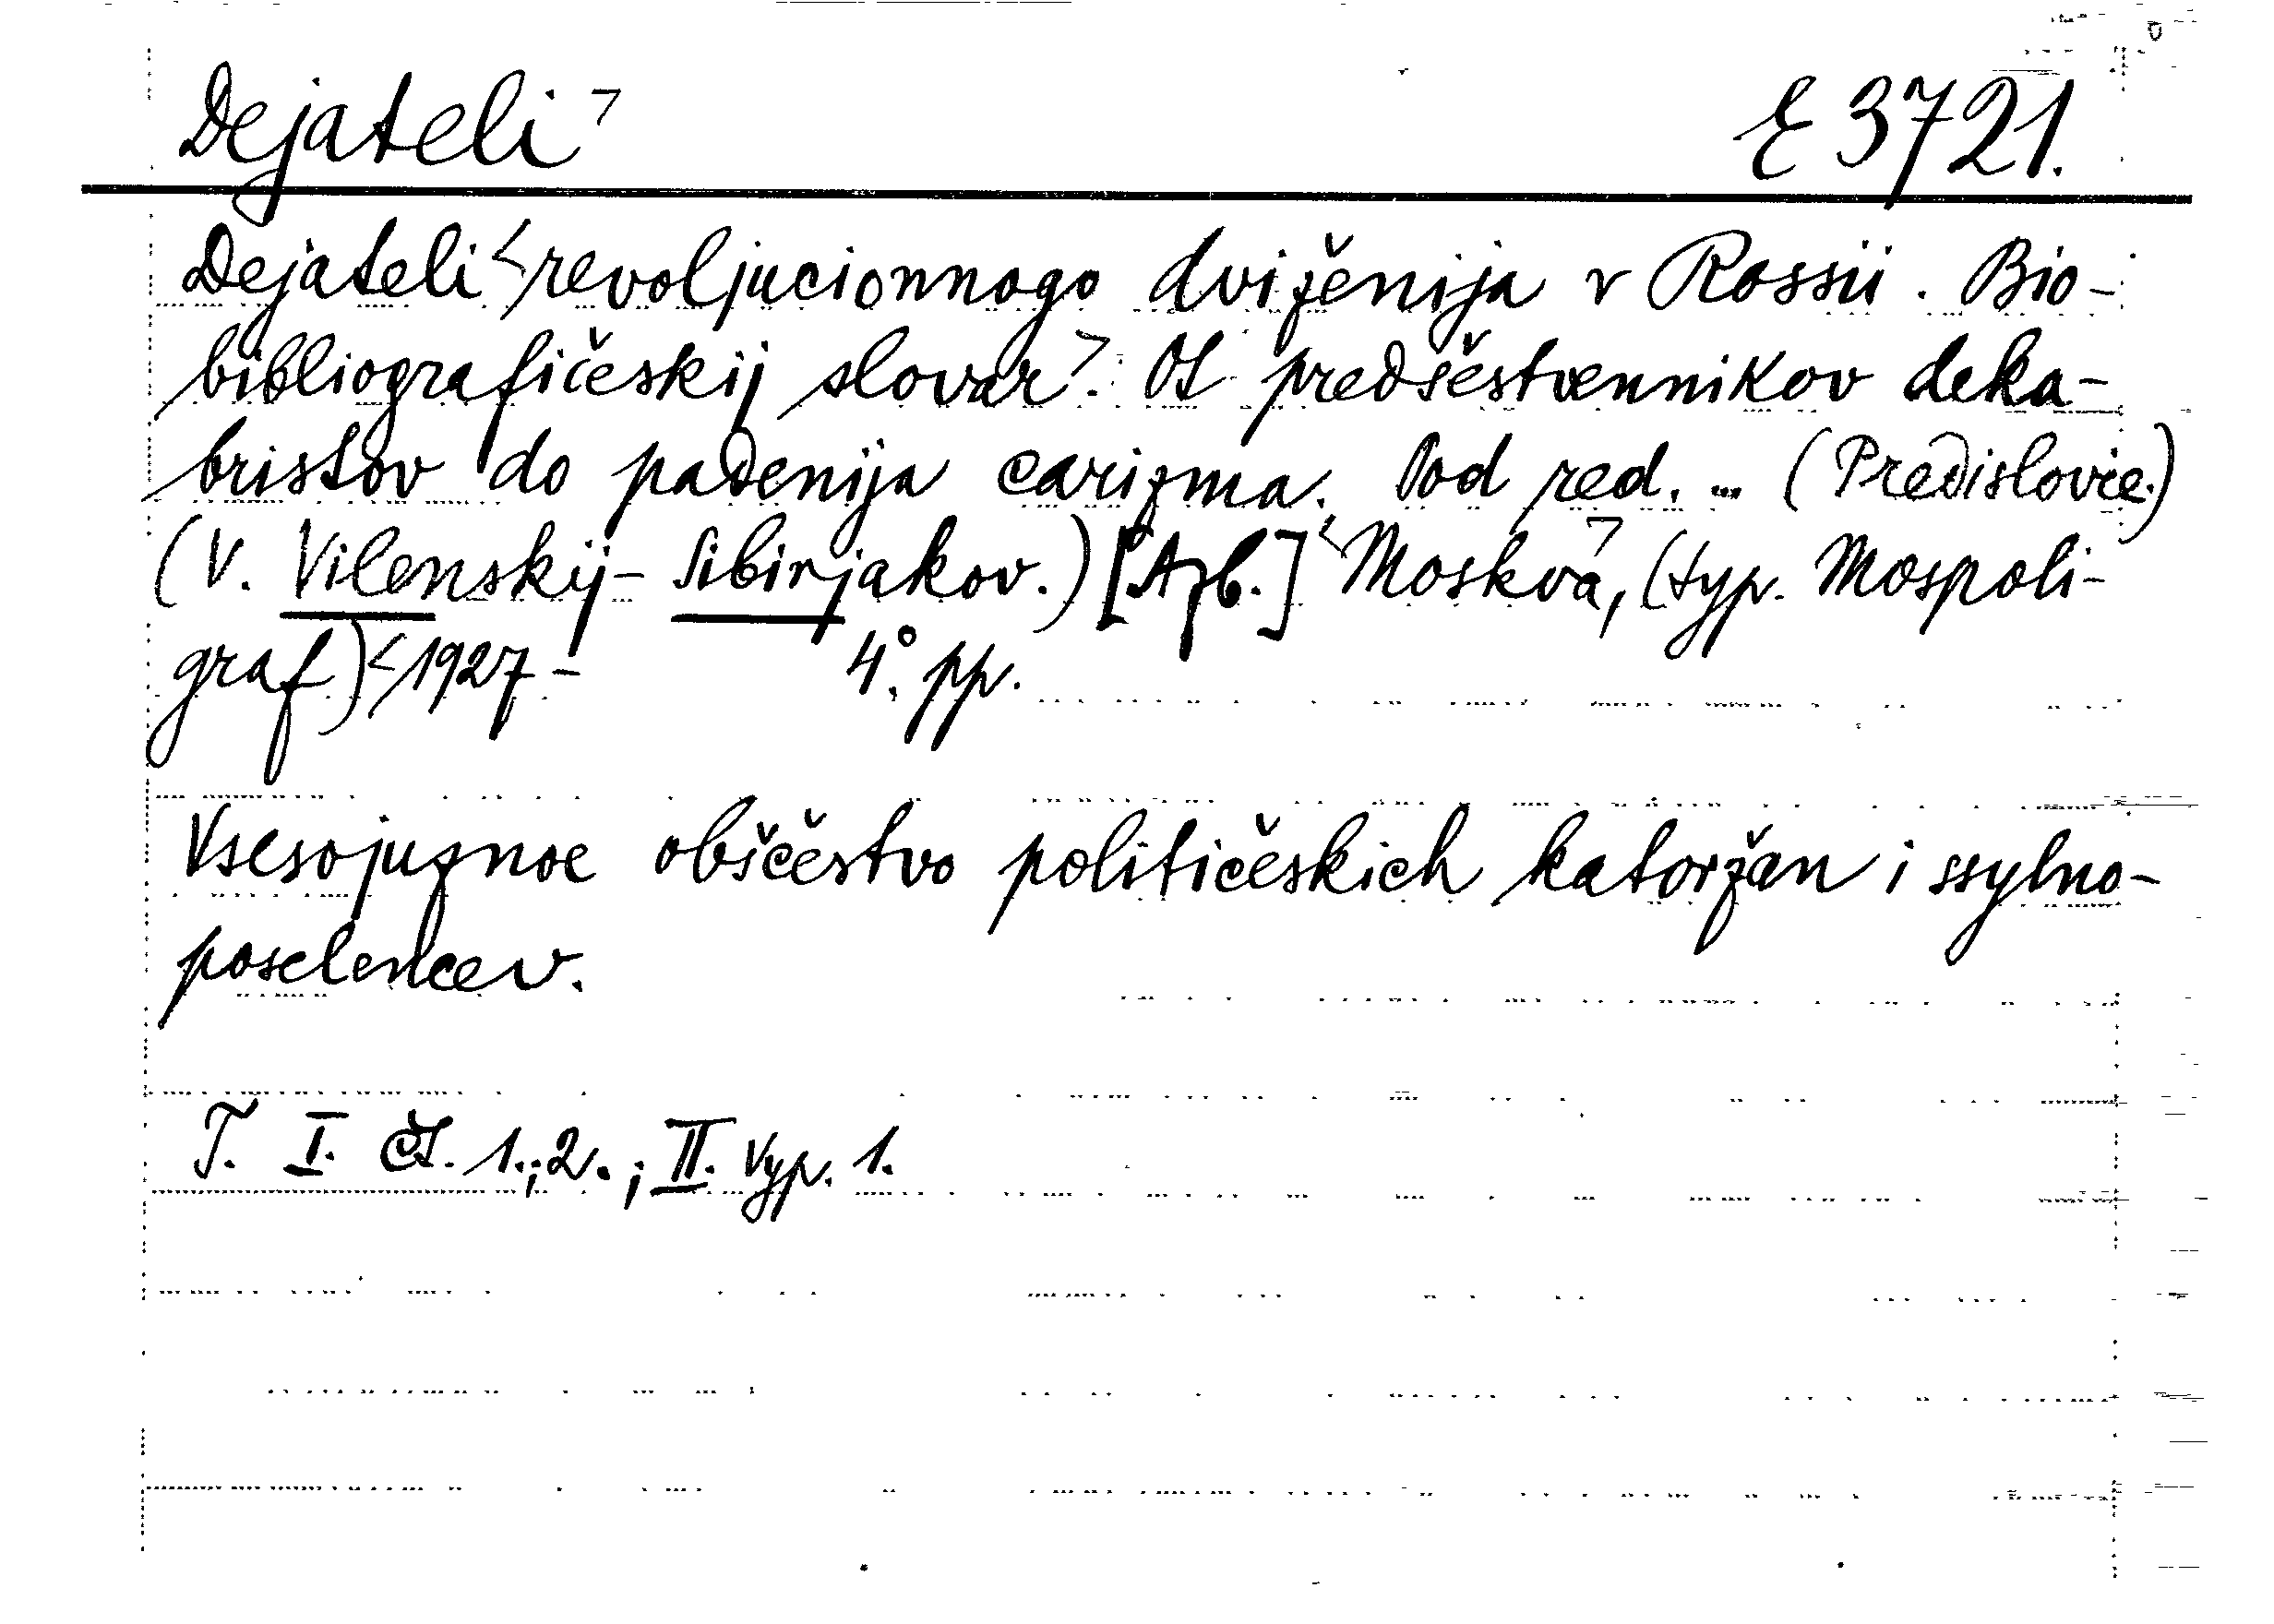 Dejateli⁊ E 3721.
Dejateli <revoljucionnogo dviženija v Rossii. Bio-
bibliografičeskij slovar⁊. Ot predšestvennikov deka-
bristov do padenija carizma. Pod red. ... (Predislovie.)
(V. Vilenskij-Sibirjakov.) [Azb.] <Moskva⁊, (typ. Mospoli-
graf) <1927- 4°. pp.
Vsesojuznoe obščestvo političeskich katoržan i ssylno-
poselencev.
T. I. Čt. 1.; 2.; II. Vyp. 1.